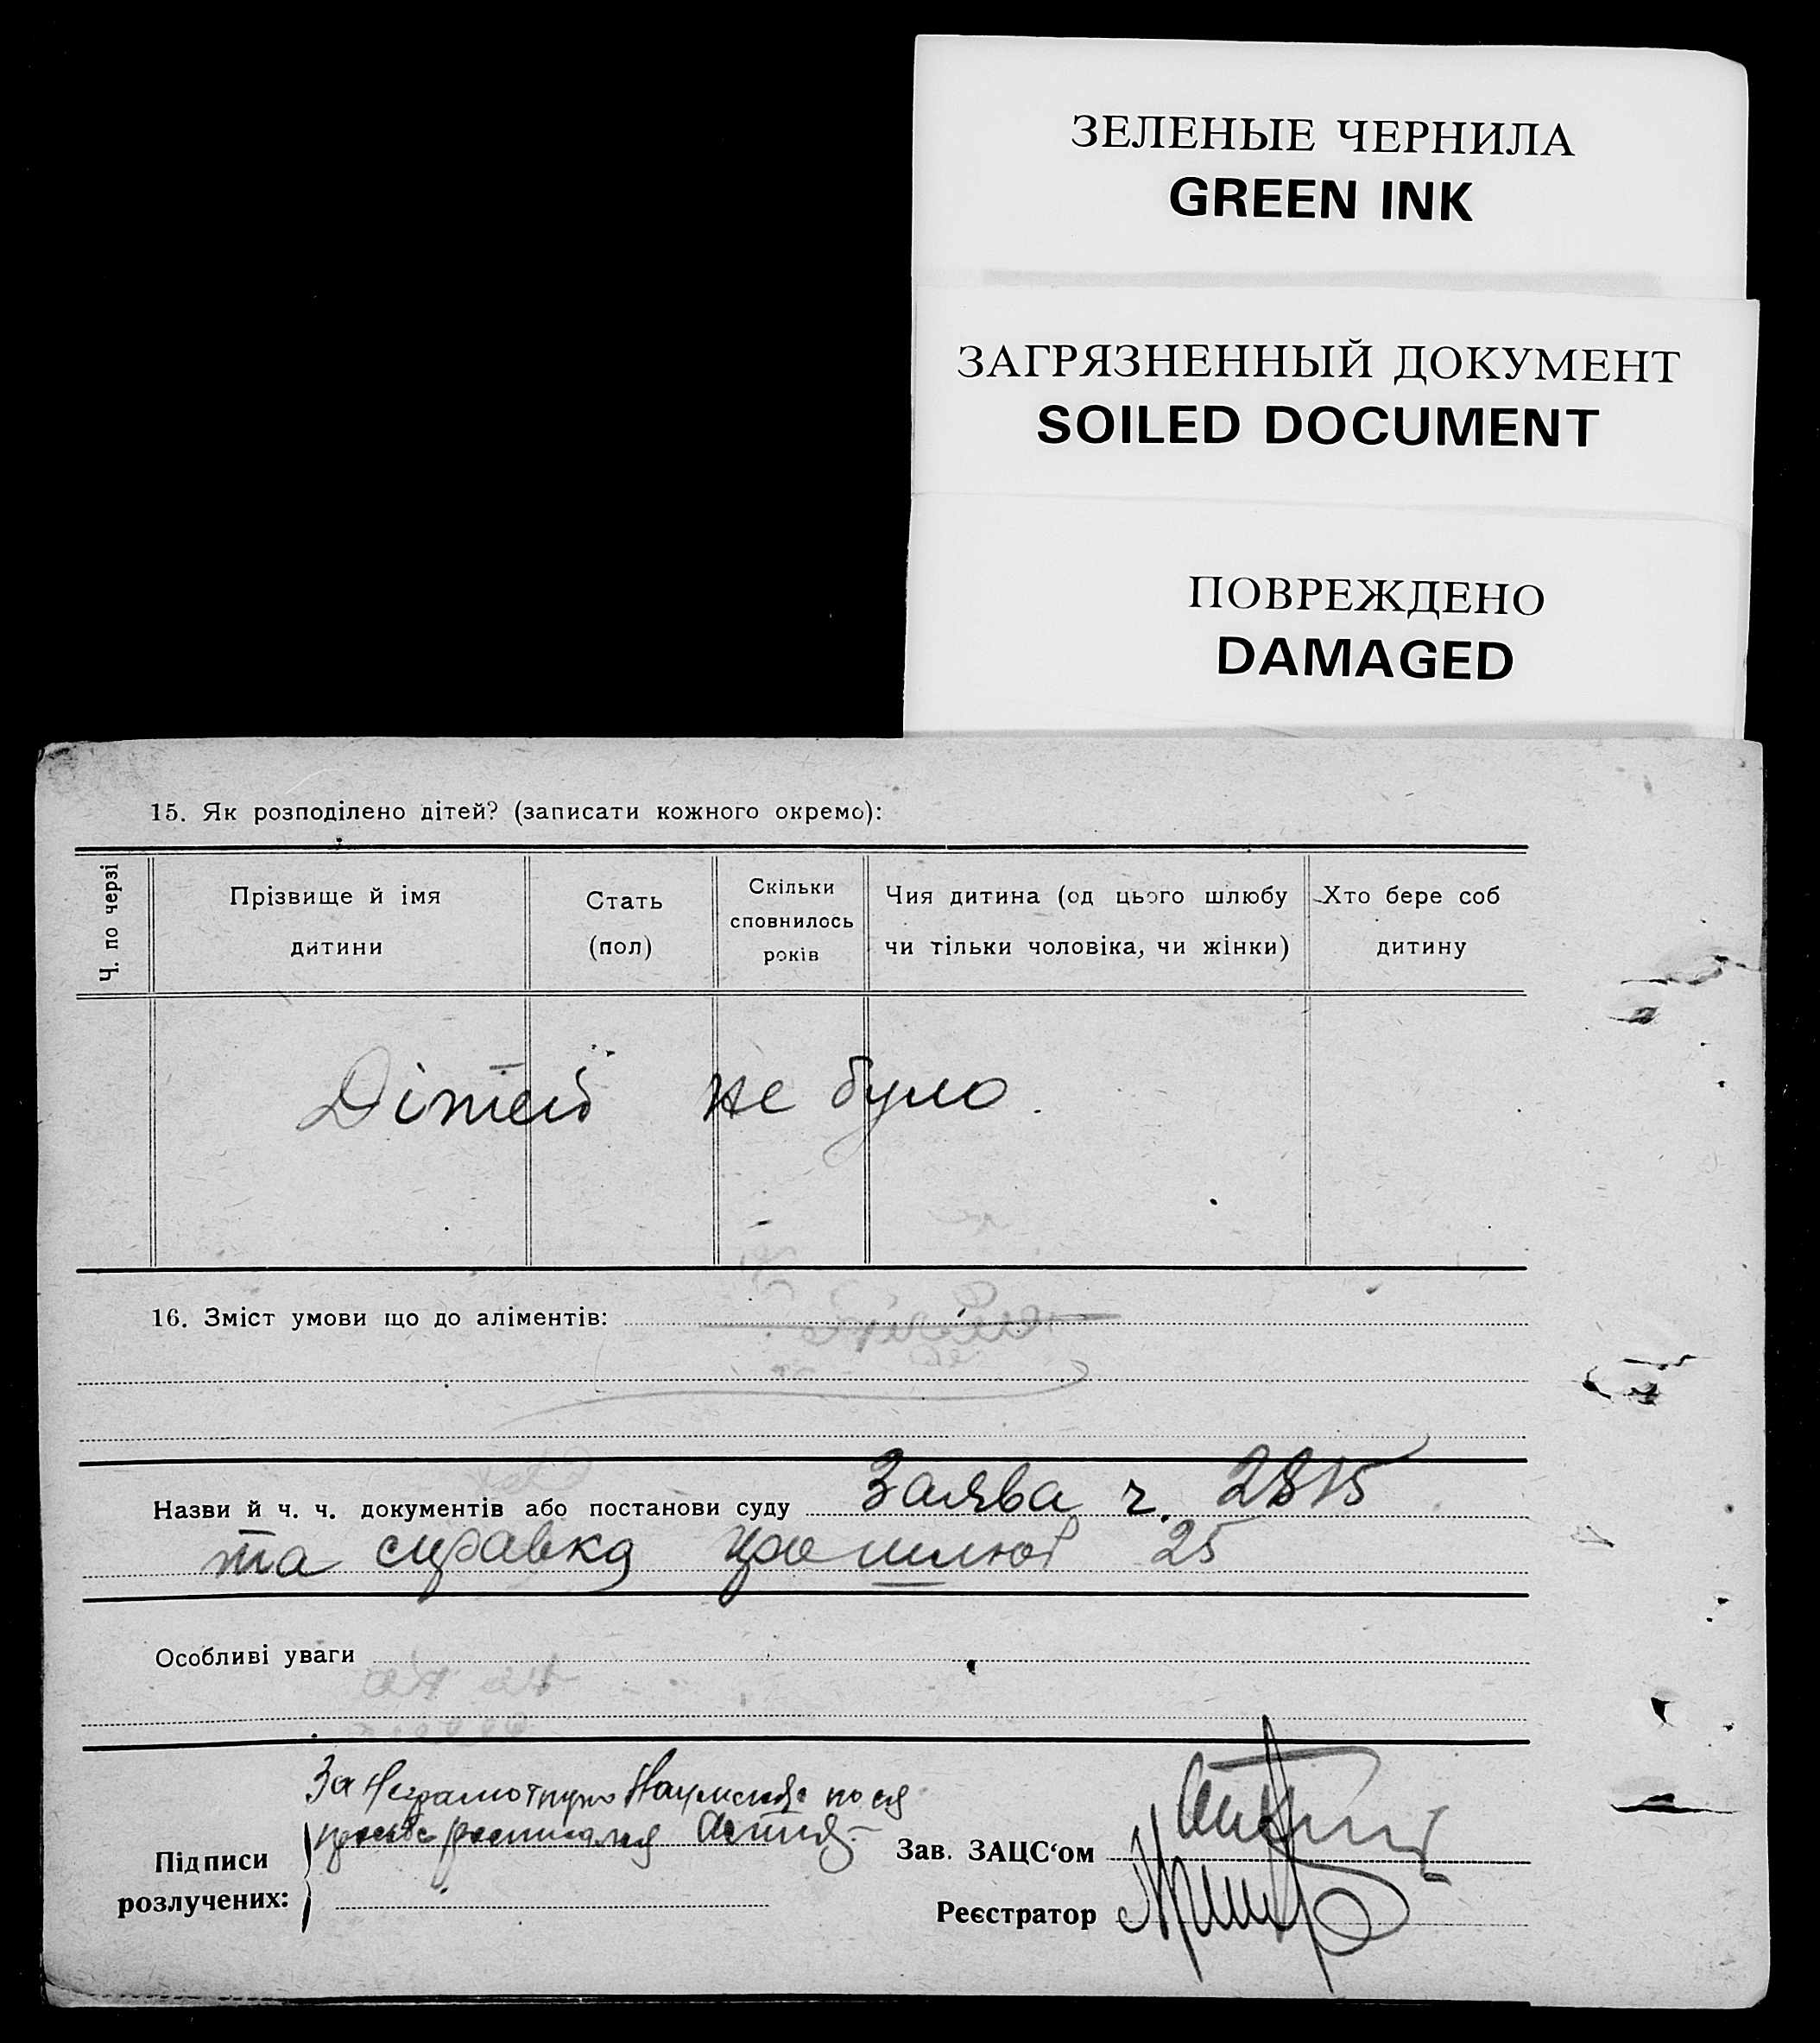 ЗЕЛЕНЫЕ ЧЕРНИЛА
GREEN INK
ЗАГРЯЗНЕННЫЙ ДОКУМЕНТ
SOILED DOCUMENT
ПОВРЕЖДЕНО
DAMAGED
15. Як розподілено дітей? (записати кожного окремо):
Ч. по черзі
Прізвище й імя
дитини
Стать
(пол)
Скільки
сповнилось
років
Чия дитина (од цього шлюбу
чи тільки чоловіка, чи жінки)
Хто бере соб
дитину
Дітей не було.
16. Зміст умови що до аліментів:
Назви й ч. ч. документів або постанови суду Заява ч. 2815
та справка про шлюб 25
Особливі уваги
За неграмотную по ея
Підписи
розлучених:
Зав. ЗАЦС‘ом
Реєстратор